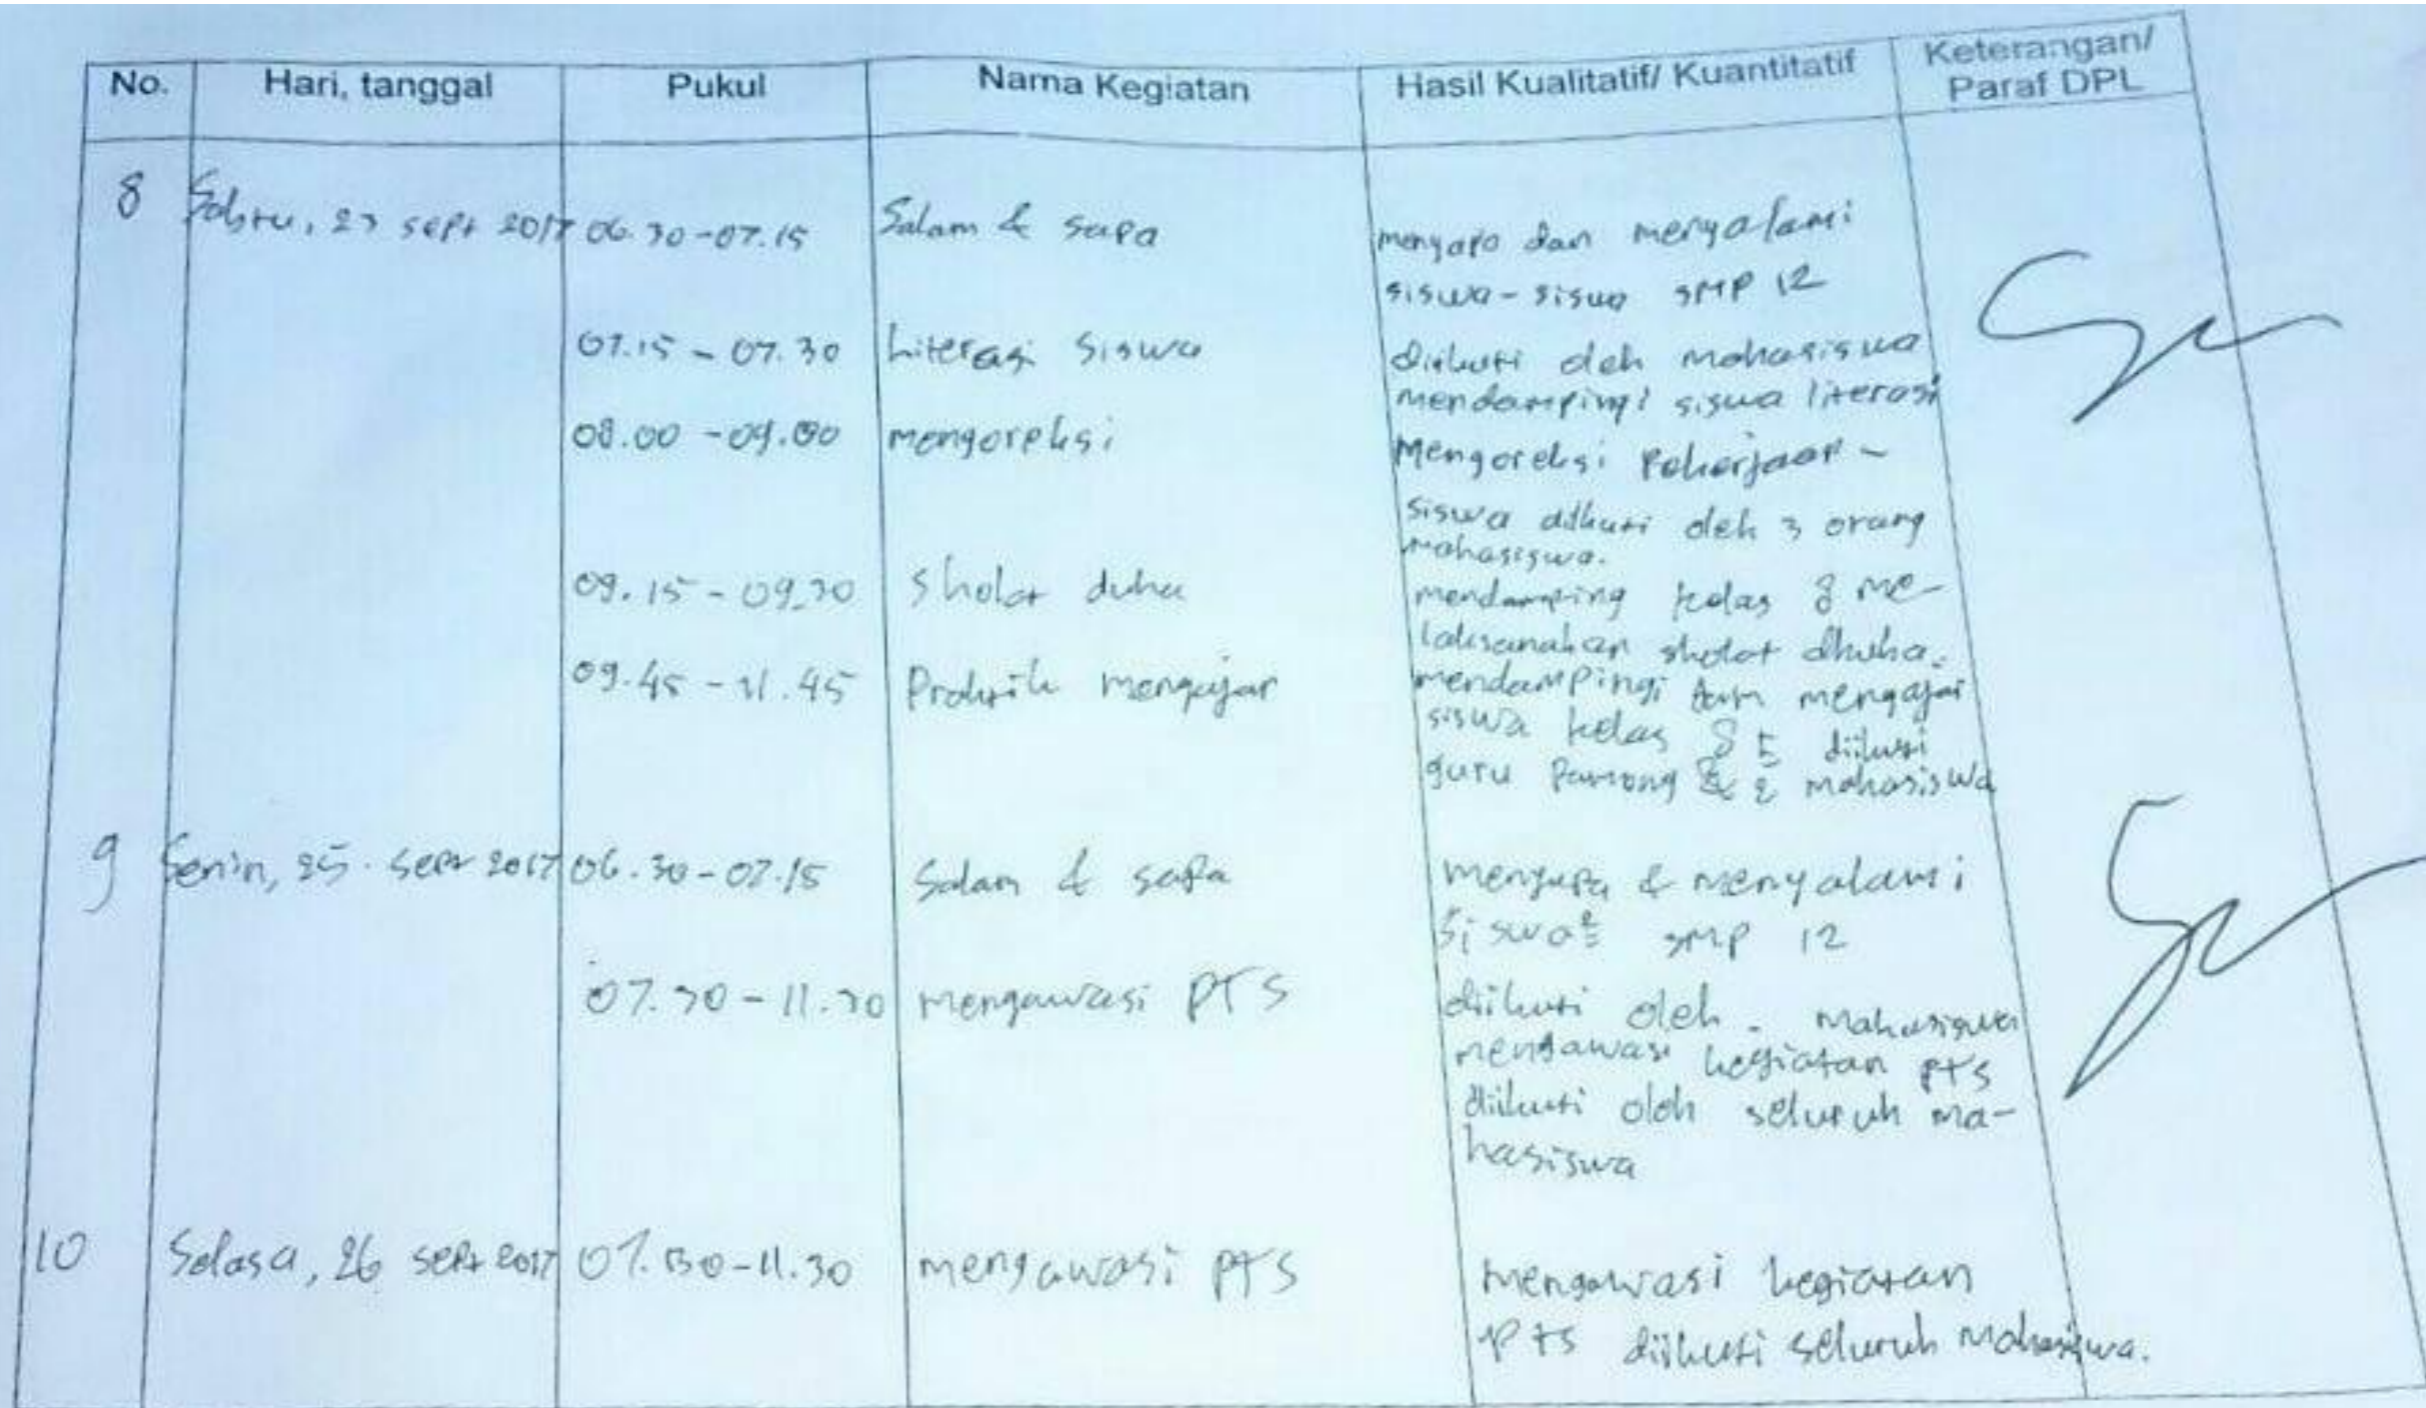 No. Hari, tanggal Pukul Nama Kegiatan Hasil Kualitatif/ Kuantitatif Keterangan/
Paraf DPL
8 Sabtu, 23 sept 2017 06.30-07.15 Salam & sapa menyapa dan menyalami
siswa-siswa SMP 12
07.15 - 07.30 Literasi siswa diikuti oleh mahasiswa
mendampingi siswa literasi
08.00 - 09.00 mengoreksi Mengoreksi Pekerjaan -
siswa diikuti oleh 3 orang
mahasiswa.
09.15 - 09.30 Sholat duha mendamping kelas 8 me-
laksanakan sholat dhuha.
09.45 - 11.45 Praktik mengajar mendampingi mengajar
siswa kelas 8 E diikuti
guru Pamong & 2 mahasiswa
9 Senin, 25. sept 2017 06.30-07.15 Salam & sapa menyapa & menyalami
Siswa2 SMP 12
07.30-11.30 mengawasi PTS diikuti oleh. mahasiswa
mengawasi kegiatan PTS
diikuti oleh seluruh ma-
hasiswa
10 Selasa, 26 sept 2017 07.30-11.30 mengawasi PTS mengawasi kegiatan
PTS diikuti seluruh mahasiswa.